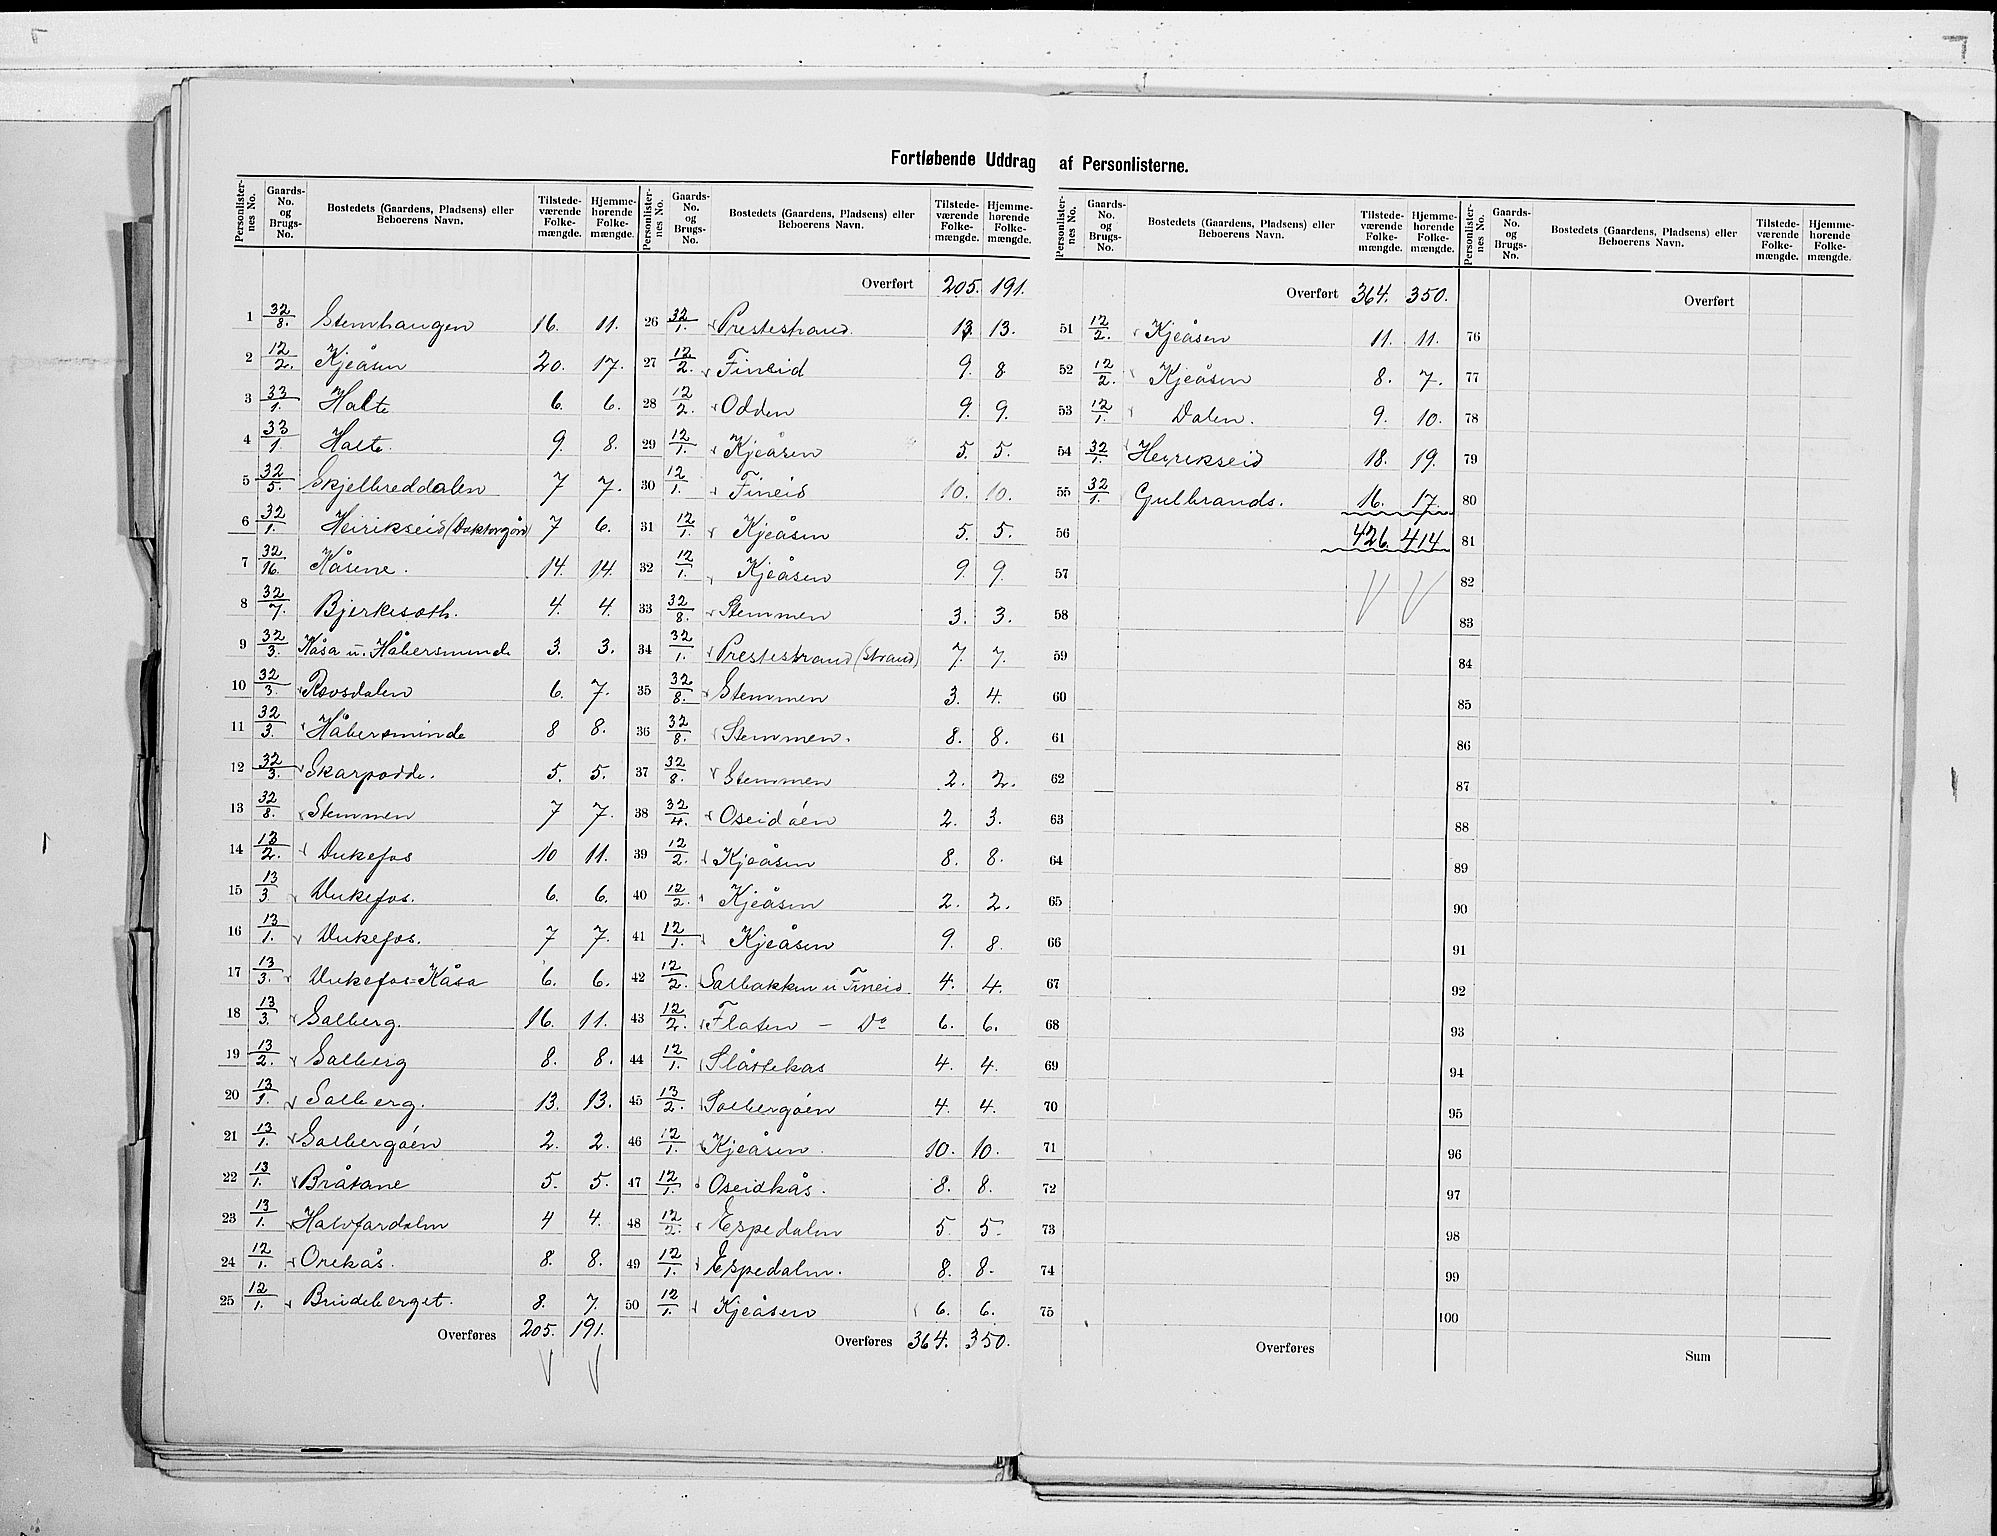 Fortløbende Uddrag af Personlisterne.
Personlisternes No. Gaards-No. og Brugs-No. Bostedets (Gaardens, Pladsens) eller Beboerens Navn. Tilstedeværende Folkemængde. Hjemmehørende Folkemængde.
1 32/8. Stemhaugen 16. 11.
2 12/2. Kjeåsen 20. 17.
3 33/1. Halte 6. 6.
4 33/1. Halte. 9. 8.
5 32/5. Skjelbreddalen 7 7.
6 32/1. Heirikseid (Doktorgård) 7 6.
7 32/16. Kåsene. 14. 14.
8 32/7. Bjerkesoth. 4. 4.
9 32/3. Kåsa u. Håbersminde 3. 3.
10 32/3. Rovsdalen 6. 7.
11 32/3. Håbersminde 8 8.
12 32/3. Skarpodde. 5. 5.
13 32/8. Stemmen 7 7.
14 13/2. Vukefos 10 11.
15 13/3. Vukefos. 6. 6.
16 13/1. Vukefos. 7 7.
17 13/3. Vukefos-Kåsa 6. 6.
18 13/3. Solberg. 16. 11.
19 13/2. Solberg 8. 8.
20 13/1. Solberg. 13. 13.
21 13/1. Solbergöen 2. 2.
22 13/1. Bråtane 5. 5.
23 13/1. Halvfardalen 4 4.
24 12/1. Orekås. 8. 8.
25 12/1. Brudeberget. 8. 7.
Overføres 205. 191.
Personlisternes No. Gaards-No. og Brugs-No. Bostedets (Gaardens, Pladsens) eller Beboerens Navn. Tilstedeværende Folkemængde. Hjemmehørende Folkemængde.
Overført 205. 191.
26 32/1. Prestestrand. 13. 13.
27 12/2. Fineid 9. 8
28 12/2. Odden 9. 9.
29 12/1. Kjeåsen 5. 5.
30 12/1. Fineid 10. 10.
31 12/1. Kjeåsen 5. 5.
32 12/1. Kjeåsen 9. 9.
33 32/8. Stemmen 3. 3.
34 32/1. Prestestrand (Strand) 7. 7.
35 32/8. Stemmen 3. 4.
36 32/8. Stemmen. 8. 8.
37 32/8. Stemmen 2. 2.
38 32/4. Oseidöen 2. 3.
39 12/2. Kjeåsen 8. 8.
40 12/2. Kjeåsen 2. 2.
41 12/1. Kjeåsen 9. 8.
42 12/2. Solbakken u Fineid 4. 4.
43 12/2. Flaten – Do 6. 6.
44 12/1. Slåttekas 4. 4.
45 13/2. Solbergöen 4. 4.
46 12/1. Kjeåsen. 10. 10.
47 12/1. Oseidkås. 8. 8.
48 12/2. Espedalen 5 5.
49 12/1. Espedalen. 8. 8.
50 12/1. Kjeåsen 6. 6.
Overføres 364. 350.
Personlisternes No. Gaards-No. og Brugs-No. Bostedets (Gaardens, Pladsens) eller Beboerens Navn. Tilstedeværende Folkemængde. Hjemmehørende Folkemængde.
Overført 364. 350.
51 12/2. Kjeåsen 11. 11.
52 12/2. Kjeåsen 8. 7.
53 12/1. Dalen. 9. 10.
54 32/1. Heirekseid 18. 19.
55 32/1. Gulbrands. 16. 17.
56 426. 414
57
58
59
60
61
62
63
64
65
66
67
68
69
70
71
72
73
74
75
Overføres
Personlisternes No. Gaards-No. og Brugs-No. Bostedets (Gaardens, Pladsens) eller Beboerens Navn. Tilstedeværende Folkemængde. Hjemmehørende Folkemængde.
Overført
76
77
78
79
80
81
82
83
84
85
86
87
88
89
90
91
92
93
94
95
96
97
98
99
100
Sum